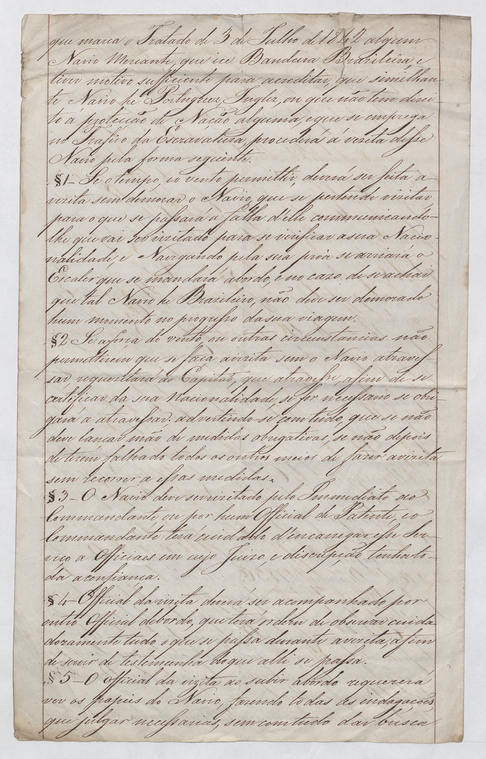 que marca o Tratado de 3 de Julho de 1842 algum
Navio Mercante, que ice Bandeira Brazileira e
tiver motivo sufficiente para acreditar, que similhan-
te Navio he Portuguez, Inglez, ou que não tem direi-
to a protecção de Nação alguma, e que se emprega
no Trafico da Escravatura, procederá á vizita desse
Navio pela forma seguinte.
§1- Se o tempo, e o vento permittir deverá ser feita a
vizita sem demorar o Navio, que se pertende vizitar
para o que se passará á falla d'elle communicando-
lhe que vai ser vizitado para se verificar a sua Nacio-
nalidade e Navegando pela sua prôa se arriará o
Escaler que se mandará abordo, e no cazo de se achar
que tal Navio he Brazileiro, não deve ser demorado
hum momento no progresso da sua viagem.
§2 Se a força do vento, ou outras circunstancias não
permittirem que se faça a vizita sem o Navio atraves-
sar, requeitará do Capitão, que atravesse, afim de se
certificar da sua Nacionalidade, e se for necessario se obri-
gará a atravessar. advertindo-se comtudo, que se não
deve lançar mão de medidas obrigativas, se não depois
de terem falhado todos os outros meios de fazer a vizita
sem recorrer a essas medidas.
§3- O Navio deve ser vizitado pelo Immediato ao
Commandante, ou por hum Official de Patente, e o
Commandante terá cuidado d'encarregar esse Ser-
viço a Officiaes em cujo juizo e discripção tenha to-
da a confiança.
§4- Official da vizita deverá ser acompanhado por
outro Official de bordo, que terá ordem de observar cuida-
dozamente tudo o que se passa durante a vizita, a fim
de servir de testemunha do que alli se passa.
§5- O official da vizita ao subir abordo requererá
ver os papeis do Navio, fazendo todas as indagações
que julgar necessarias, sem comtudo dar busca